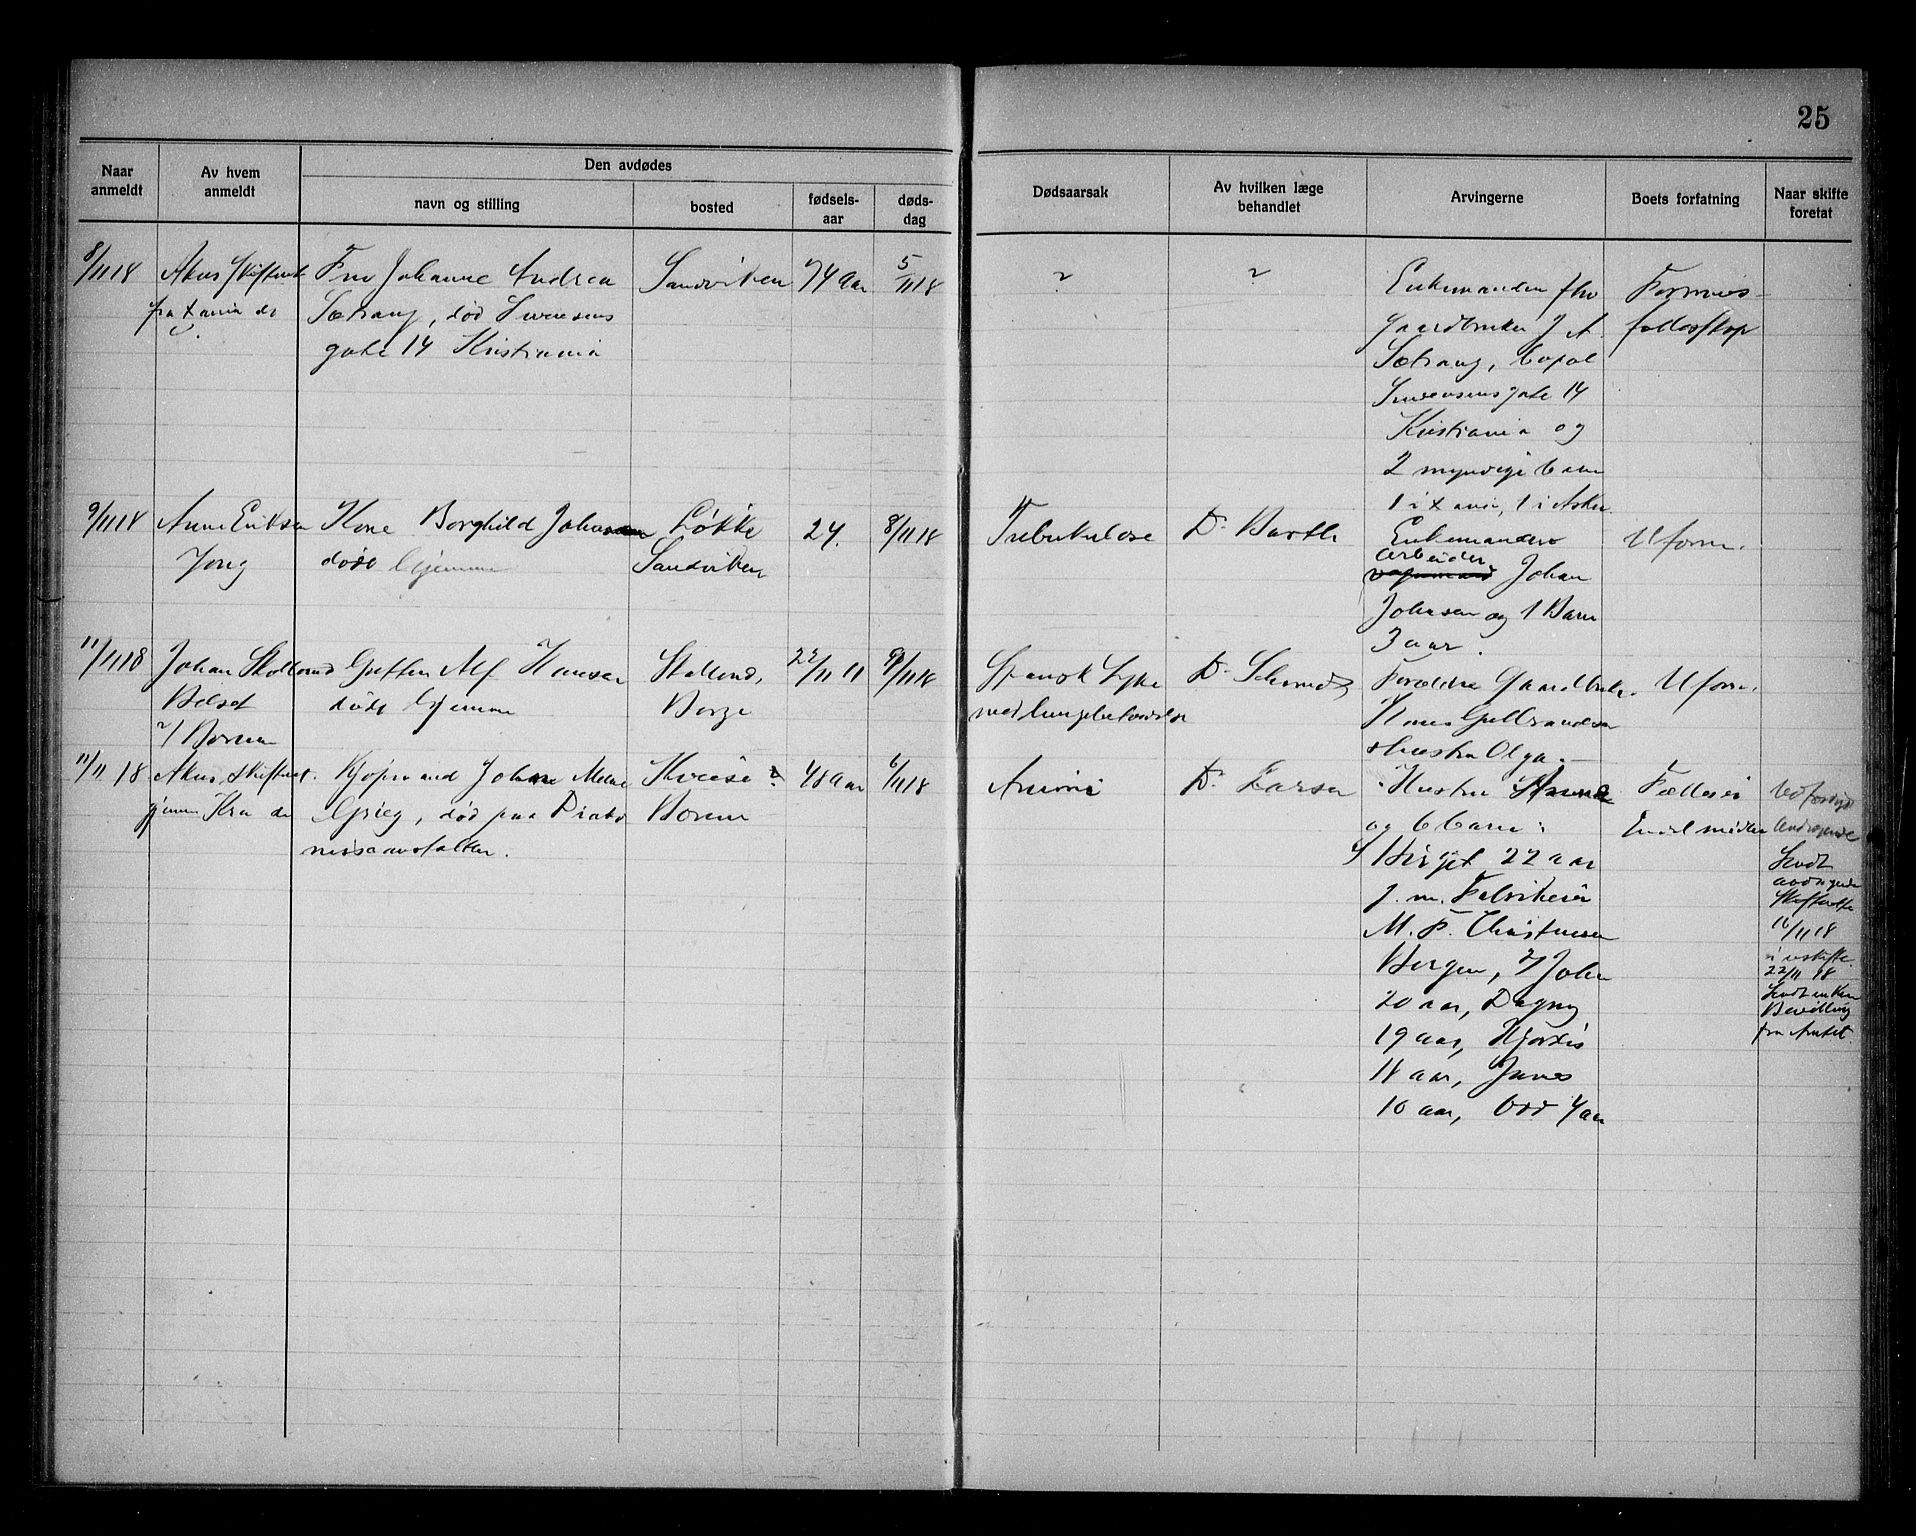 25
Naar anmeldt
Av hvem anmeldt
Den avdødes
navn og stilling
bosted
fødselsaar
dødsdag
Dødsaarsak
Av hvilken læge behandlet
Arvingerne
Boets forfatning
Naar skifte foretat
8/11 18
Akers Skifteret
fra Xania
Fru Johanne Andrea
Sætrang, død
gate 14 Kristiania
Sandviken
74 aar
5/11 18
?
?
Enkemanden fhv
Gaardbruker J A.
Sætrang, bopæl
gate 14
Kristiania og
2 myndige barn
1 i Xania, 1 i Asker
Formues-
fællesskap
9/11 18
Anne Eriksen
Jong
Kone Borghild Johansen
døde hjemme
Løkke
Sandviken
24.
8/11 18
Tuberkulose
Dr Barth
Enkemanden
arbeider
Johan
Johnsen og 1 Barn
3 aar.
Uform.
11/11 18
Johan Stallund
Belset
i Bærum
Gutten Alf Hansen
døde hjemme
Stallund,
Berge
22/11 11
9/11 18
Spansk Syke
med lungebetændelse
Dr Schmidt
Forældre Gaardbruker
Hans Gulbrandsen
Hustru Olga.
Uform.
11/11 18
Akers skifteret.
gjennem Kra
Kjøpmand John Meine
Grieg, død paa Diako
nisseanstalten.
Bærum
48 aar
6/11 18
Anæmi
Dr. Larsen
Hustru
og 6 barn:
Birgit 22 aar
g. m. Fabrikeier
M. F. Christensen
Bergen, 2) John
20 aar, Dagny
19 aar, Hjørdis
18 aar, Jens
10 aar, Odd 7 aar
Fælleseie
Endel midler
Sendt
16/11 18
i uskifte.
22/11 18
Bevilling